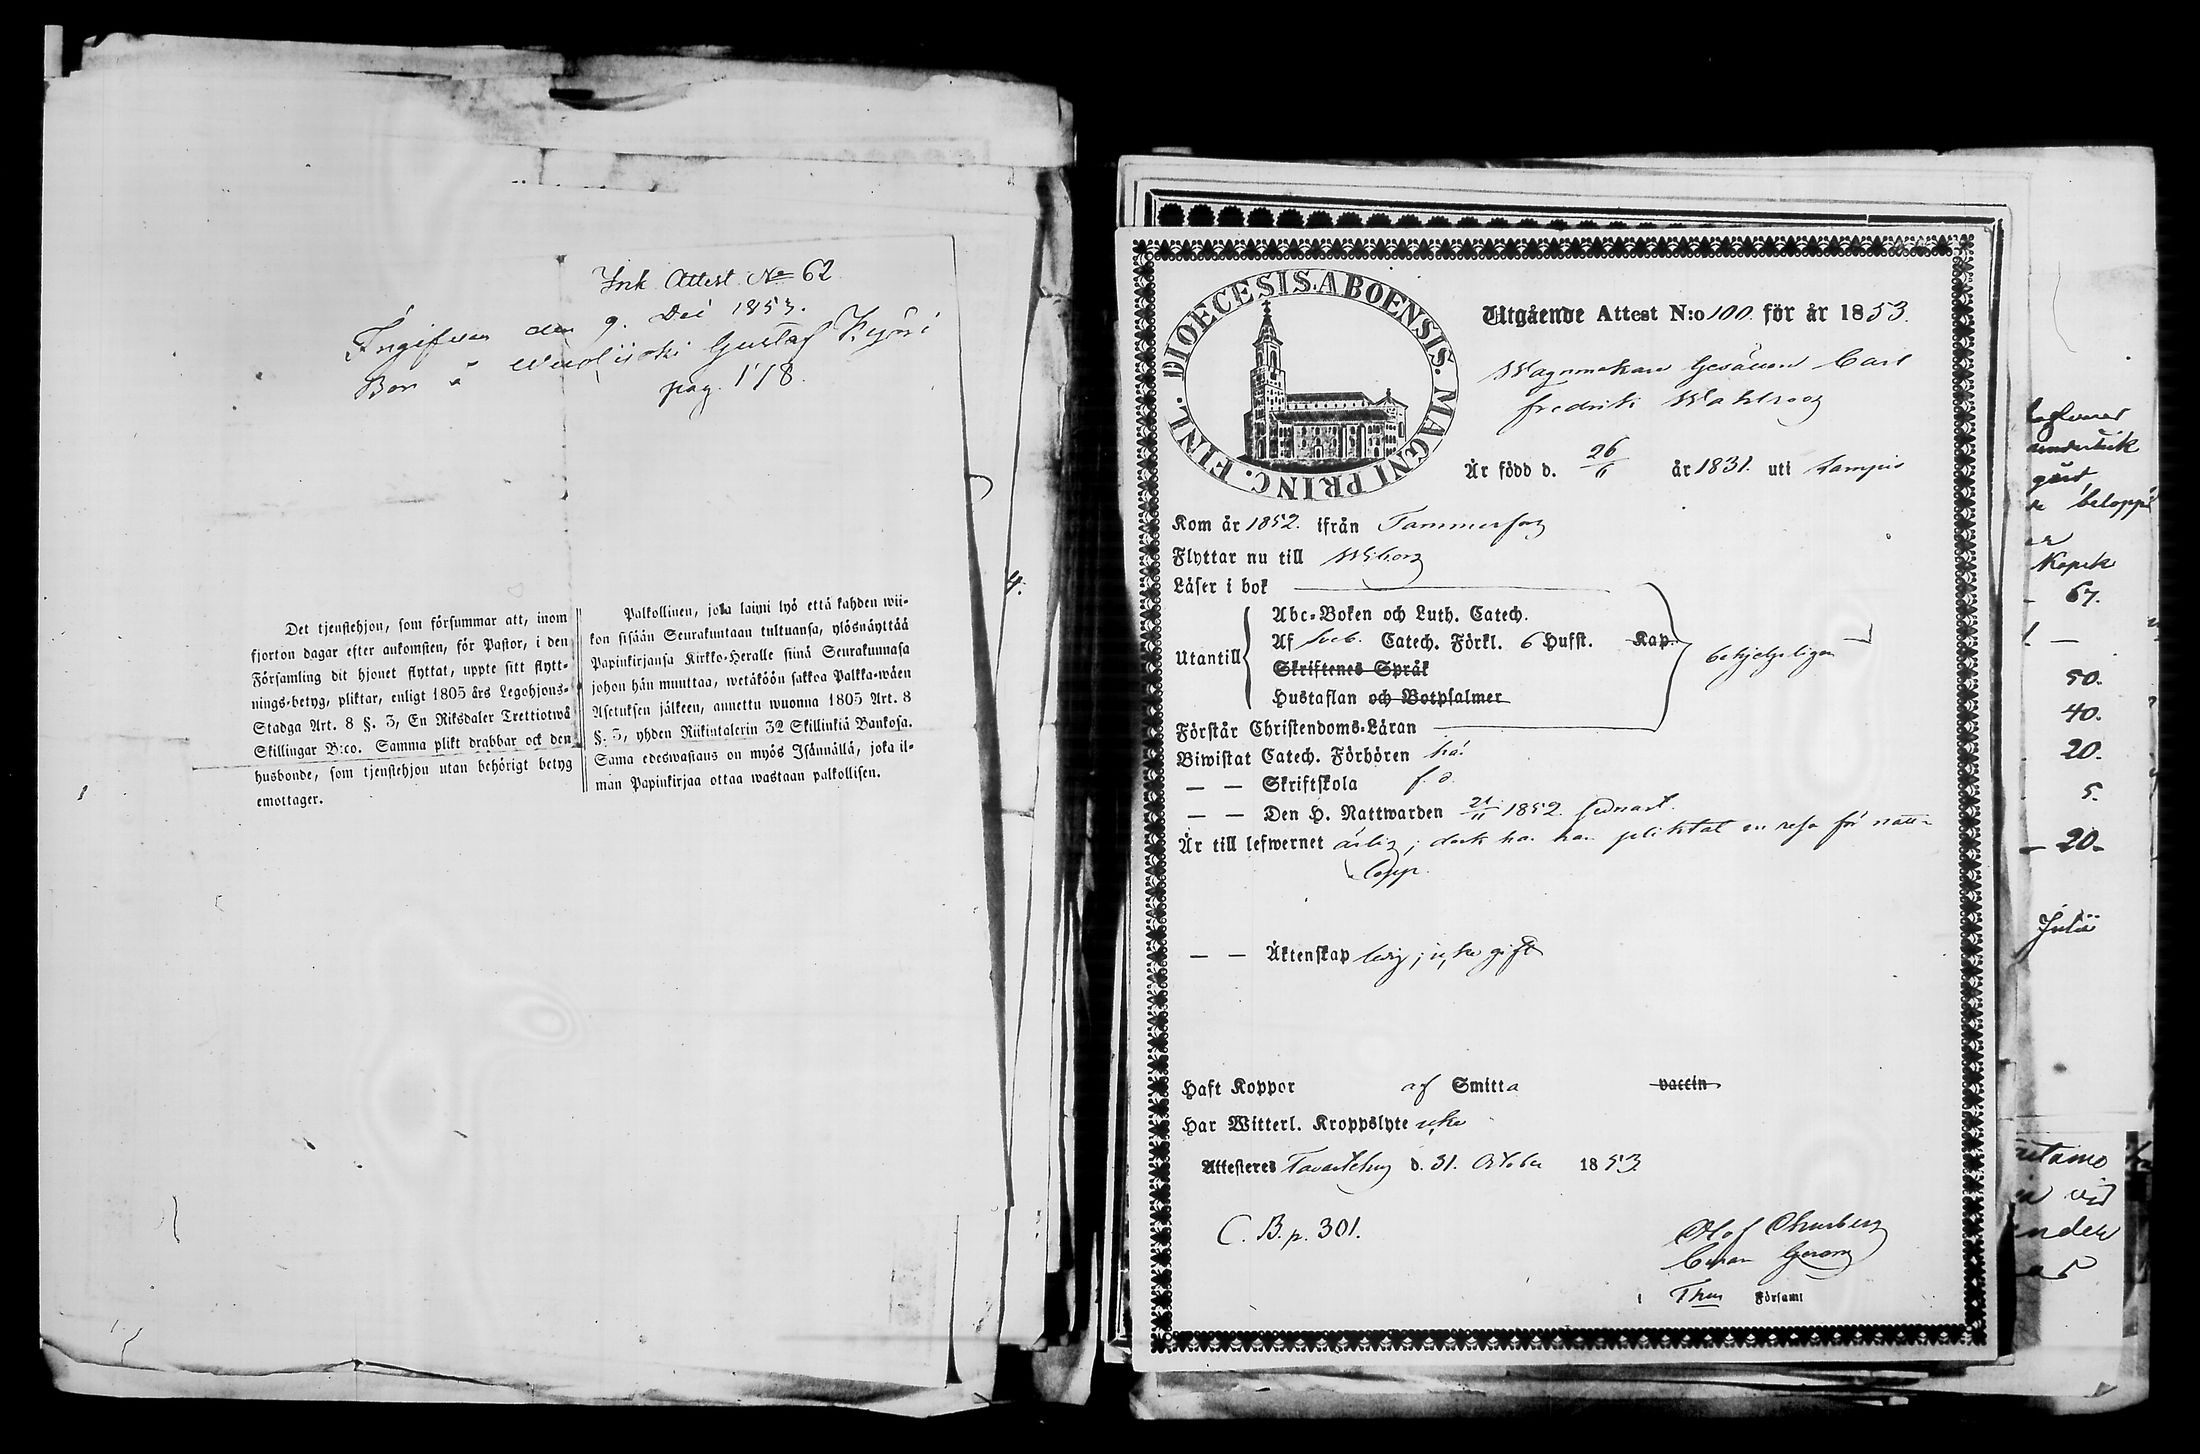 Ink. Attest. No 62.
Ingifven den 9. Dec 1853.
Bor å Gustaf Hyöri
pag. 178.
Det tjenstehjon, som försummar att, inom
fjorton dagar efter ankomsten, för Pastor, i den
Församling dit hjonet flyttat, uppte sitt flytt-
nings-betyg, pliktar, enligt 1805 års Legohjons-
Stadga Art. 8 §. 3, En Riksdaler Trettiotwå
Skillingar B:co. Samma plikt drabbar ock den
husbonde, som tjenstehjon utan behörigt betyg
emottager.
Palkollinen, joka laimi lyö että kahden wii-
kon sisään Seurakuntaan tultuansa, ylösnäyttää
Papinkirjansa Kirkko-Heralle siinä Seurakunnasa
johon hän muuttaa, wetäköön sakkoa Palkka-wäen
Asetuksen jälkeen, annettu wuonna 1805 Art. 8
§. 3, yhden Riikintalerin 32 Skillinkiä Bankosa.
Sama edeswastaus on myös Isännällä, joka il-
man Papinkirjaa ottaa wastaan palkollisen.
DIOECESIS. ABOENSIS. MAGNI PRINC. FINL.
Utgående Attest N:o 100. för år 1853.
Wagnmakare Gesällen Carl
Fredrik Wahlroos
Är född d. 26/6 år 1831. uti Lampis
Kom år 1852. ifrån Tammerfors
Flyttar nu till Wiborg
Läser i bok
Utantill
Abc-Boken och Luth. Catech.
Af Sveb. Catech. Förkl. 6 Hufst. Kap.
Skriftenes Språk
Hustaflan och Botpsalmer
behjelpligen
Förstår Christendoms-Läran
Biwistat Catech. Förhören
— — Skriftskola
— — Den H. Nattwarden 21/11 1852. sednast.
Är till lefwernet ärlig; dock har han pliktat en resa för natt-
lopp.
— — Äktenskap ledig; icke gift
Haft Koppor af Smitta vaccin
Har Witterl. Kroppslyte icke
Attesteres Tavastehus d. 31. October 1853
C. B. p. 301.
Olof
i Församl
4.
Kopek
67.
50.
40.
20.
5.
20.
Julii